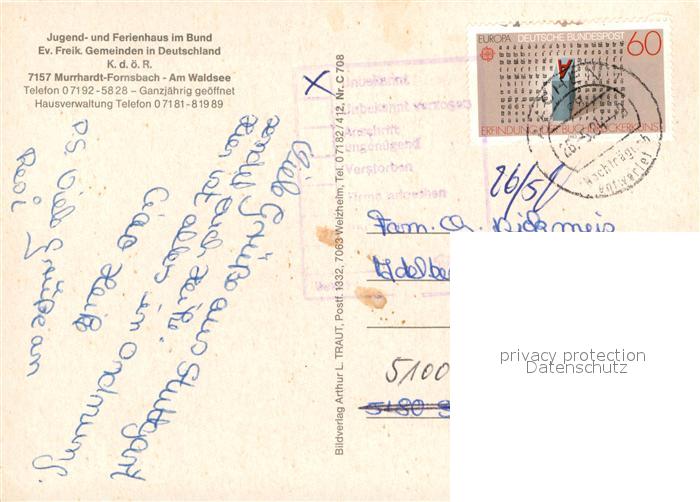 Jugend- und Ferienhaus im Bund
Ev. Freik. Gemeinden in Deutschland
K. d. ö. R.
7157 Murrhardt-Fornsbach - Am Waldsee
Telefon 07192-5828 – Ganzjährig geöffnet
Hausverwaltung Telefon 07181-81989
Viele Grüße aus Stuttgart
sendet Euch Heike.
Hier ist alles in Ordnung.
Ciao Heike
PS. Viele Grüße an
Bildverlag Arthur L. TRAUT, Postf. 1332, 7063 Welzheim, Tel. 07182/412, Nr. C 708
X
Unbekannt verzogen
Anschrift
ungenügend
Verstorben
Firma erloschen
EUROPA DEUTSCHE BUNDESPOST 60
ERFINDUNG DER BUCHDRUCKERKUNST
26/5
Fam.
5100
5180
privacy protection
Datenschutz